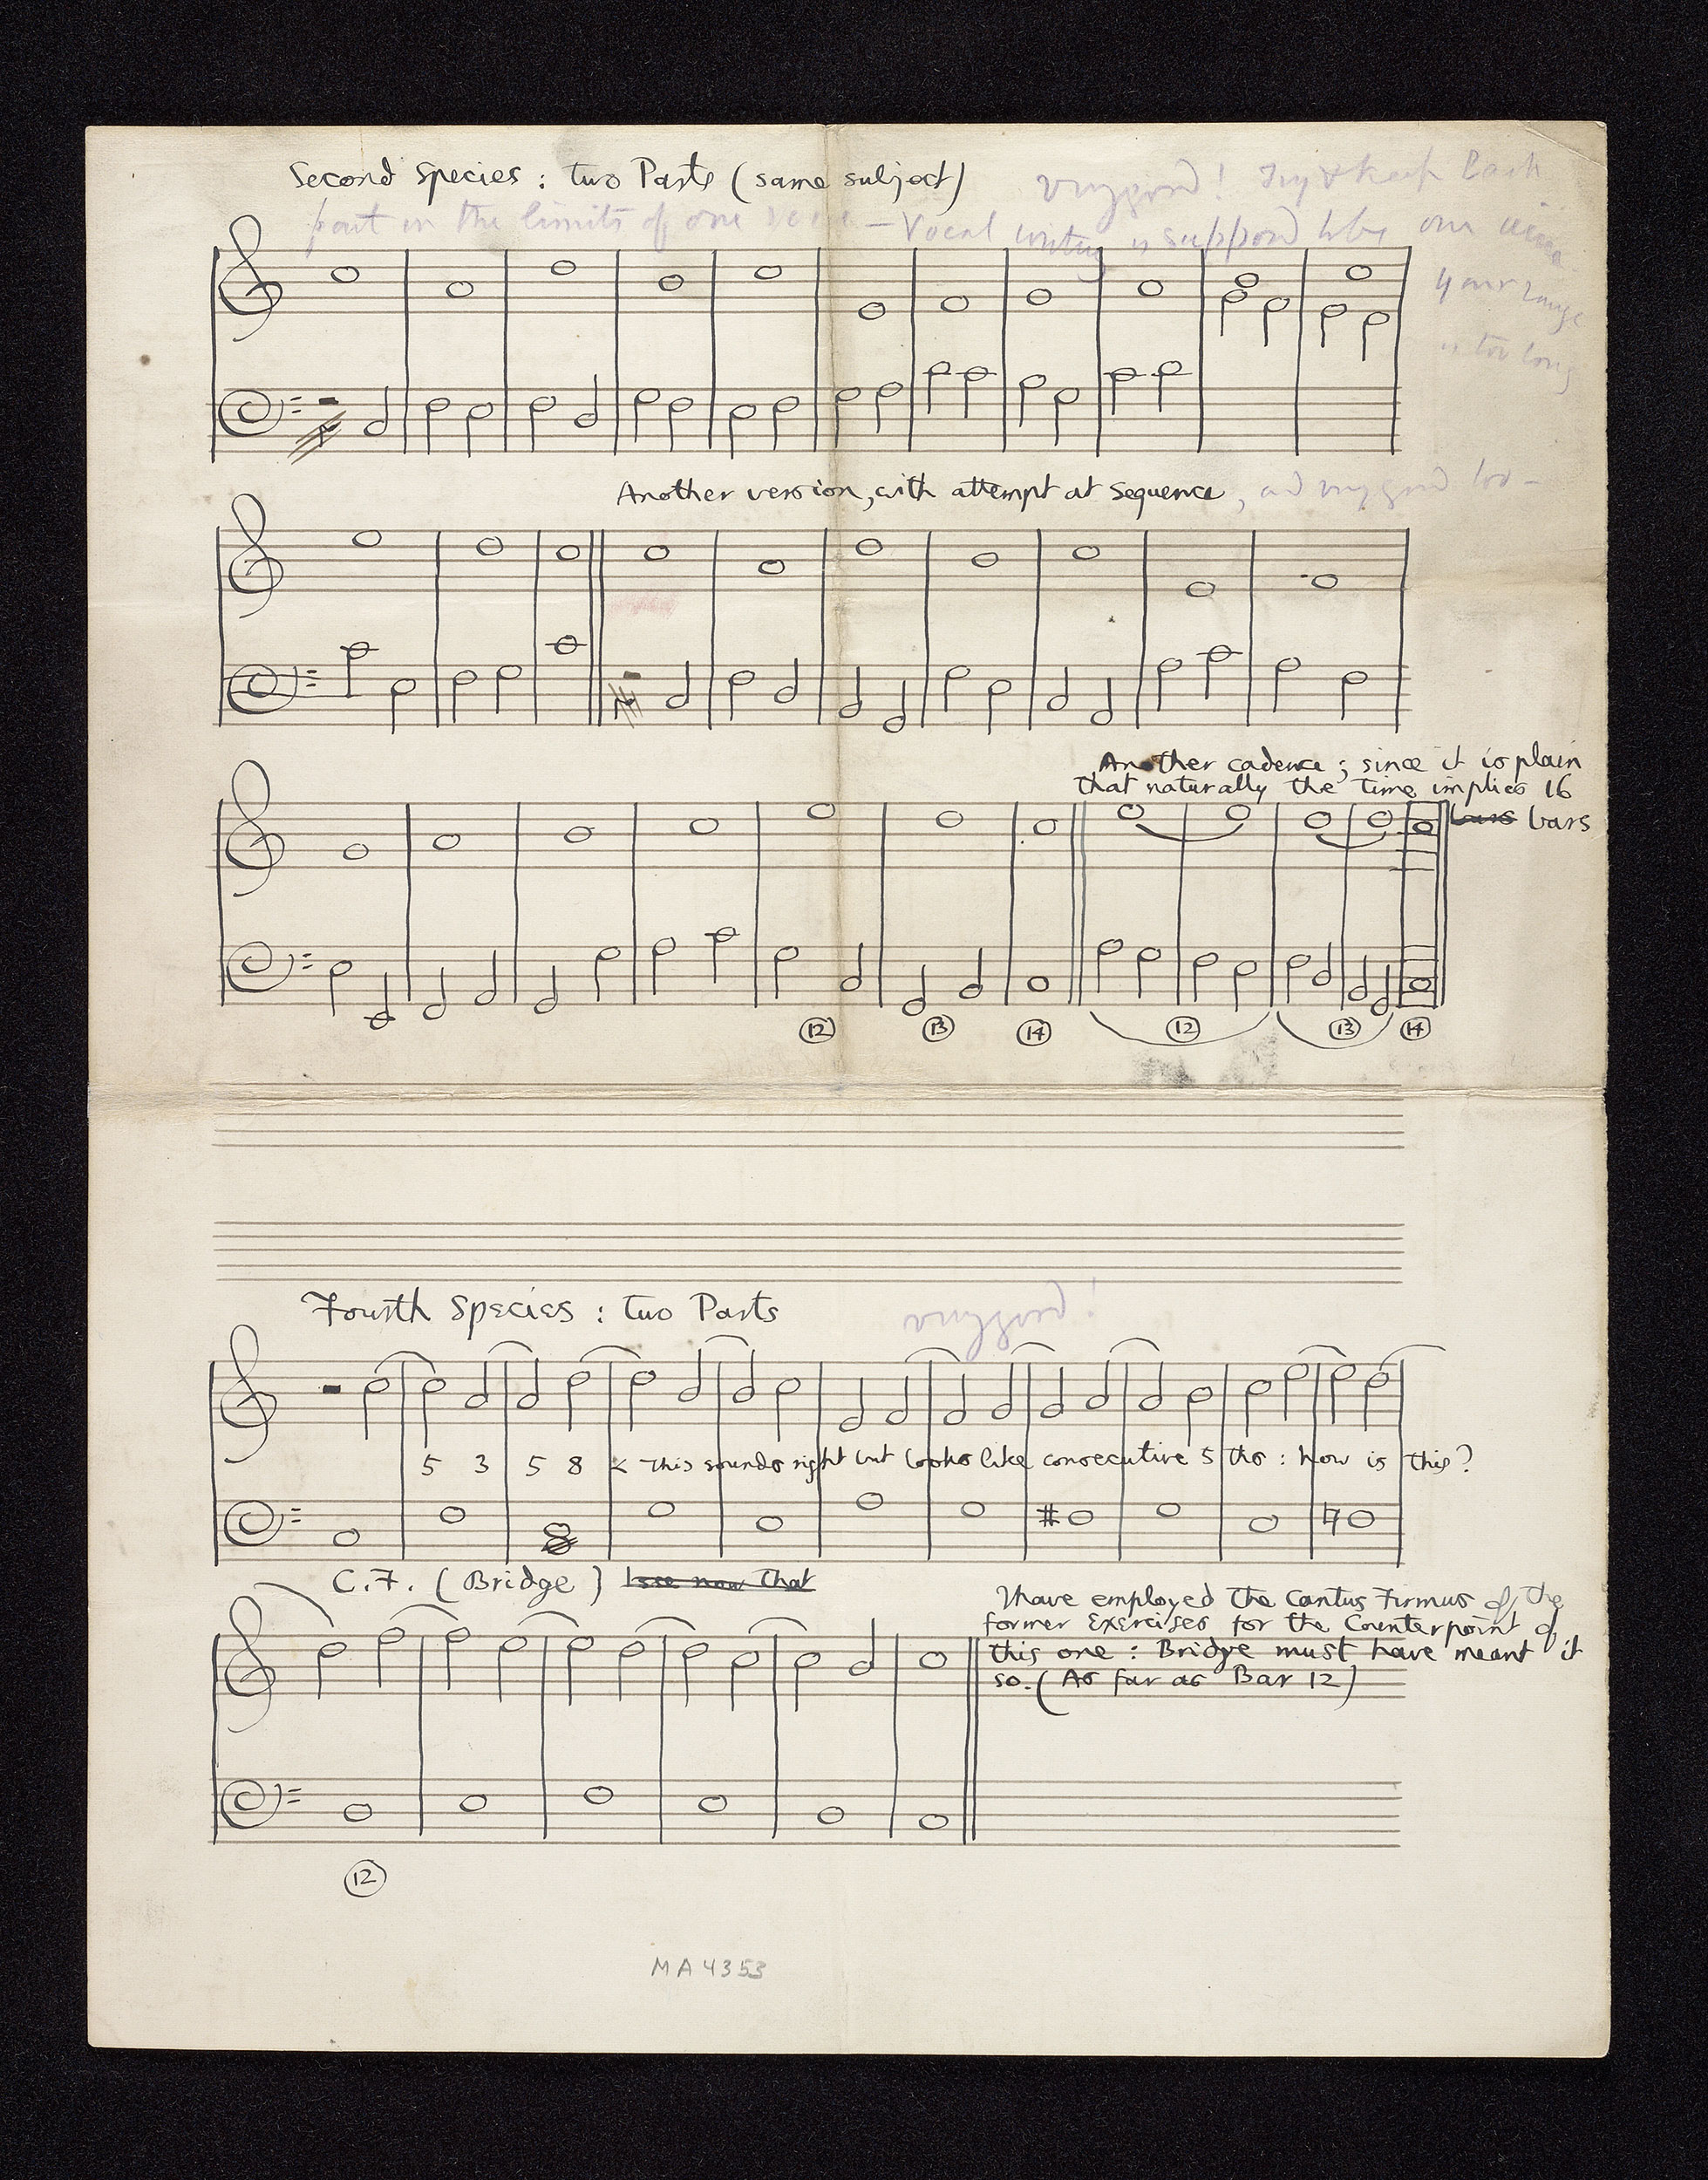 Second Species : Two Parts (same subject)
very good! Try & keep Each
part in the limits of one voice — Vocal writing is supposed to be our
your range
is too long
Another version, with attempt at Sequence, and very good too -
Another cadence ; since it is plain
that naturally the time implies 16
bars bars
12 13 14 12 13 14
Fourth Species : Two Parts very good!
5 3 5 8 < This sounds right but looks like consecutive 5ths : how is this?
C.F. (Bridge) I see now that
I have employed the Cantus Firmus of the
former Exercises for the Counterpoint of
this one : Bridge must have meant it
so. (As far as Bar 12)
12
MA 4353